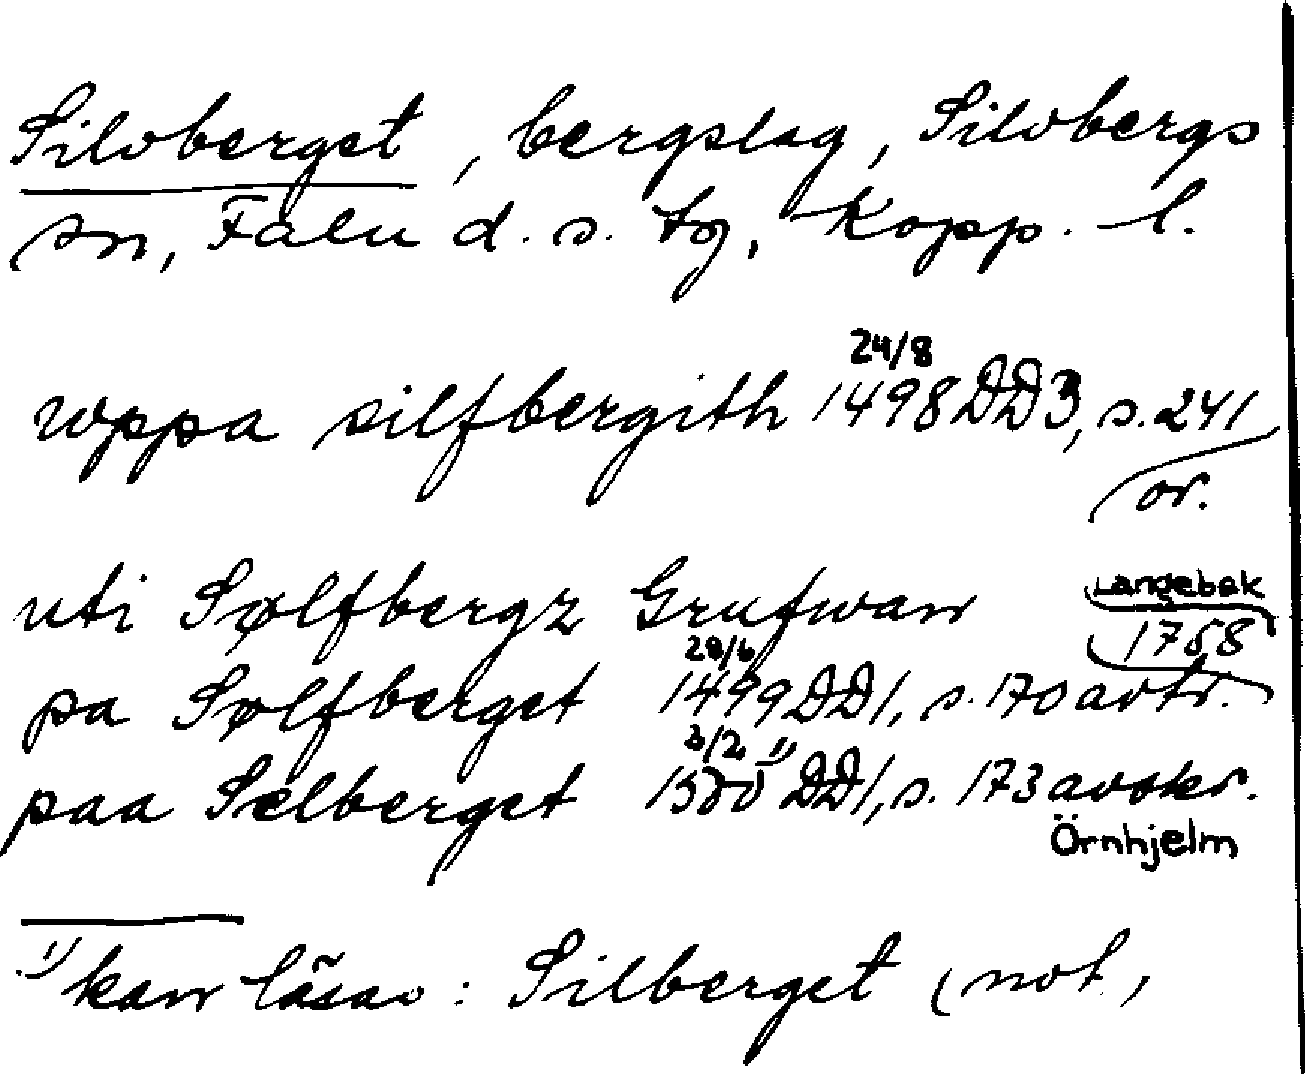 Silvberget, bergslag, Silvbergs
sn, Falu d. s. tg, Kopp. l.
24/8
wppa silfbergith 1498 DD3, s. 241
or.
uti Sølfbergz Grufwan
Langebek
1758
28/6
pa Sølfberget 1499 DD1, s. 170 avtr.
3/2 1)
paa Selberget 1500 DD1, s. 173 avskr.
Örnhjelm
1) kan läsas: Silberget (not,